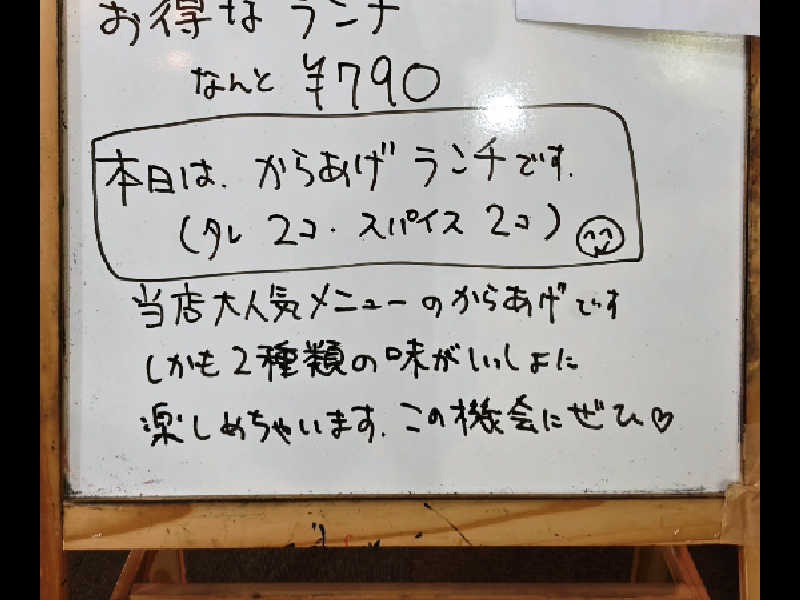 お得なランチ
なんと ¥790
本日は、からあげランチです.
(タレ 2コ・スパイス 2コ)
当店大人気メニューのからあげです
しかも2種類の味がいっしょに
楽しめちゃいます.この機会にぜひ♡